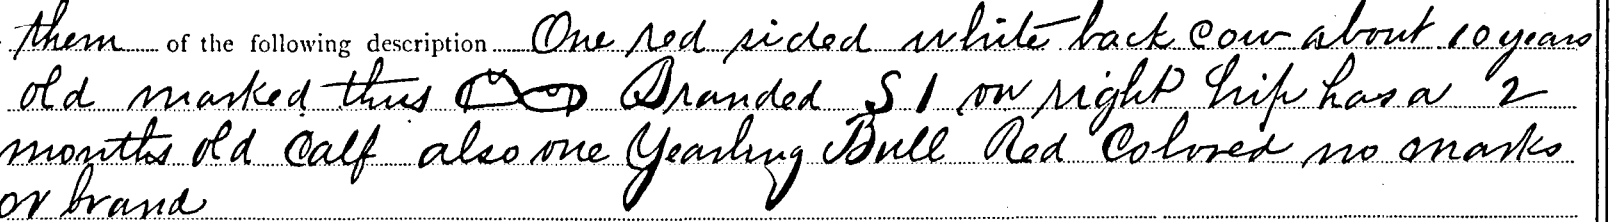 them of the following description One red sided white back cow about 10 years
old marked thus Branded S 1 on right hip has a 2
months old calf also one Yearling Bull Red Colored no marks
or brand